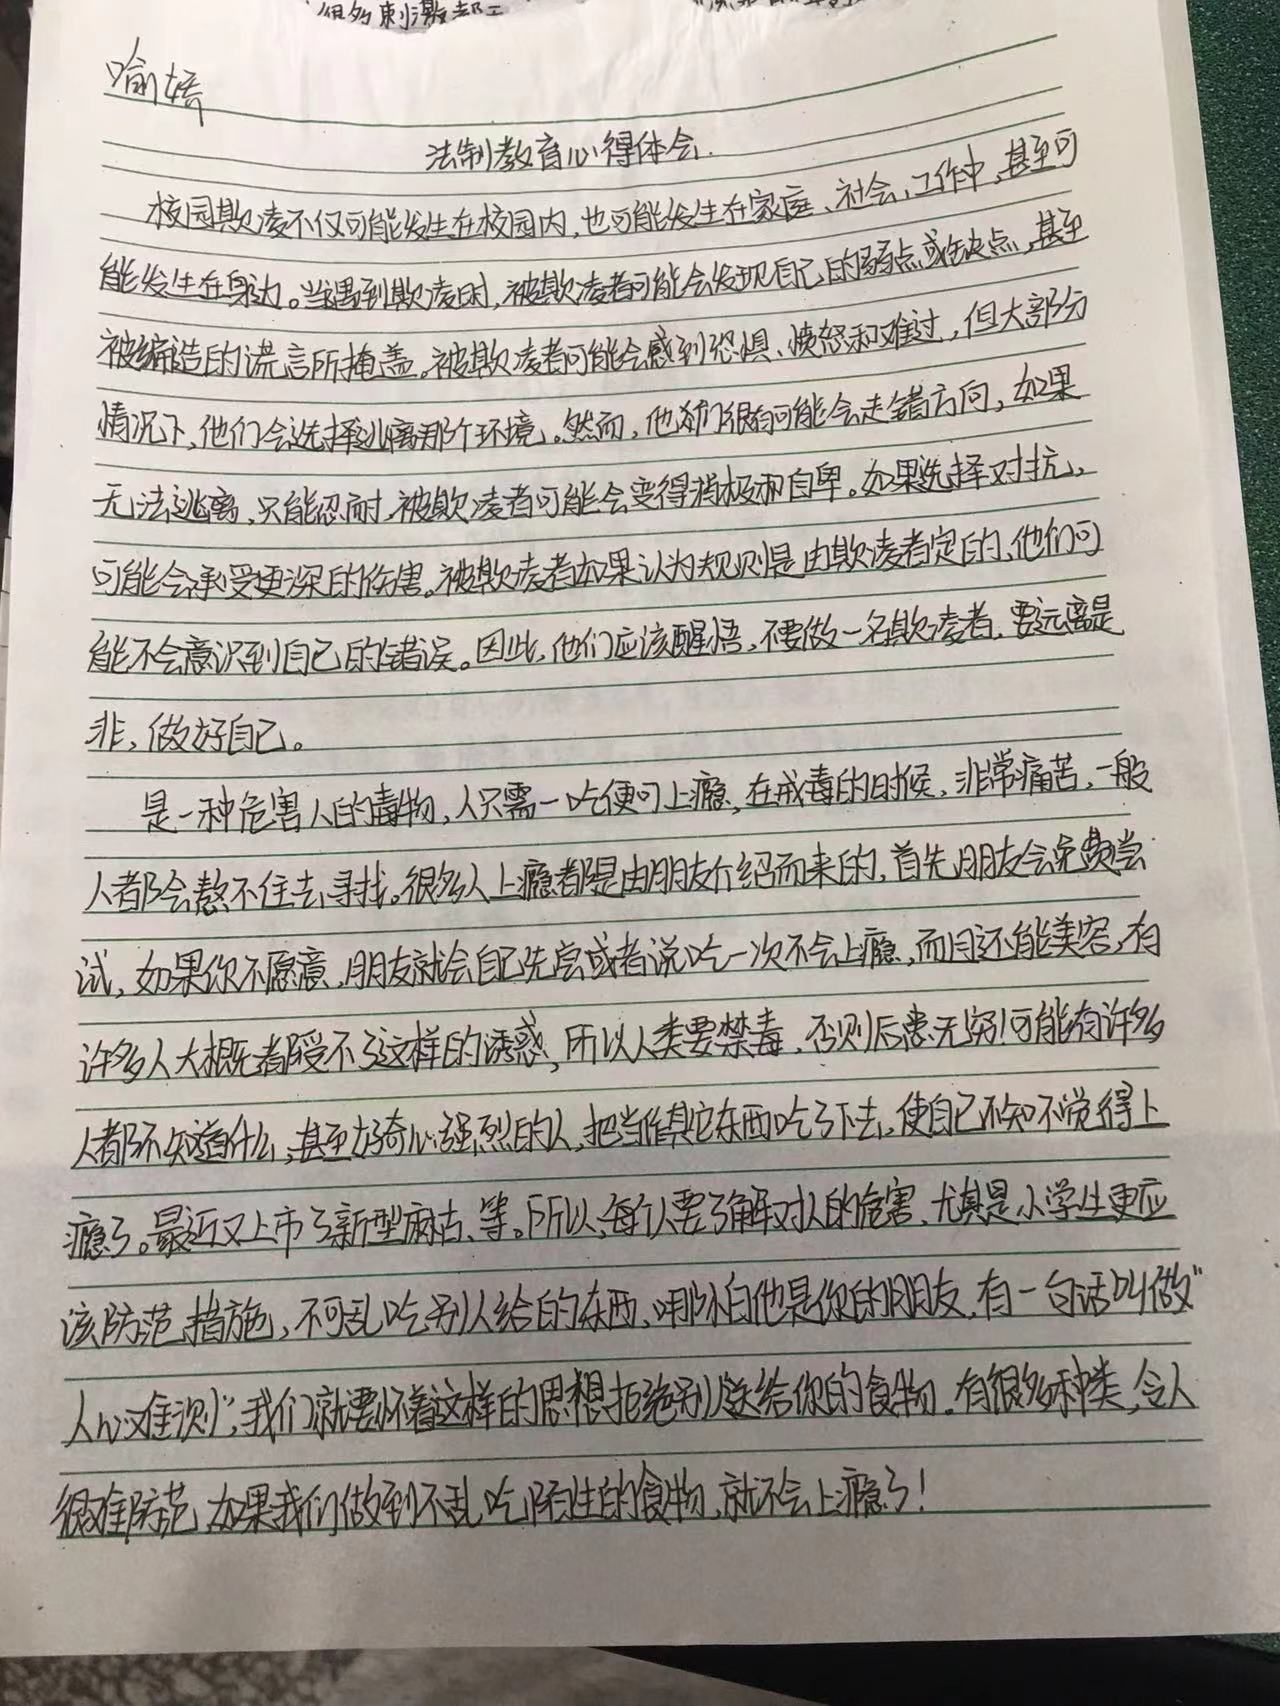 很多刺激都
喻婷
法制教育心得体会.
校园欺凌不仅可能发生在校园内,也可能发生在家庭、社会、工作中,甚至可
能发生在身边。当遇到欺凌时,被欺凌者可能会发现自己的弱点或缺点,甚至
被编造的谎言所掩盖。被欺凌者可能会感到恐惧、愤怒和难过,但大部分
情况下,他们会选择逃离那个环境。然而,他们很有可能会走错方向,如果
无法逃离,只能忍耐,被欺凌者可能会变得消极和自卑。如果选择对抗,
可能会承受更深的伤害。被欺凌者如果认为规则是由欺凌者定的,他们可
能不会意识到自己的错误。因此,他们应该醒悟,不要做一名欺凌者,要远离是
非,做好自己。
是一种危害人的毒物,人只需一吃便可上瘾,在戒毒的时候,非常痛苦,一般
人都会熬不住去寻找。很多人上瘾都是由朋友介绍而来的,首先朋友会免费尝
试,如果你不愿意,朋友就会自己先尝或者说吃一次不会上瘾,而且还能美容,有
许多人大概都受不了这样的诱惑,所以人类要禁毒,否则后患无穷!可能有许多
人都不知道什么,甚至好奇心强烈的人,把当作其它东西吃了下去,使自己不知不觉得上
瘾了。最近又上市了新型麻古、等。所以,每个人要了解对人的危害,尤其是小学生更应
该防范措施,不可乱吃别人给的东西,哪怕他是你的朋友,有一句话叫做“
人心难测”,我们就要怀着这样的思想拒绝别人送给你的食物。有很多种类,令人
很难防范,如果我们做到不乱吃陌生的食物,就不会上瘾了!